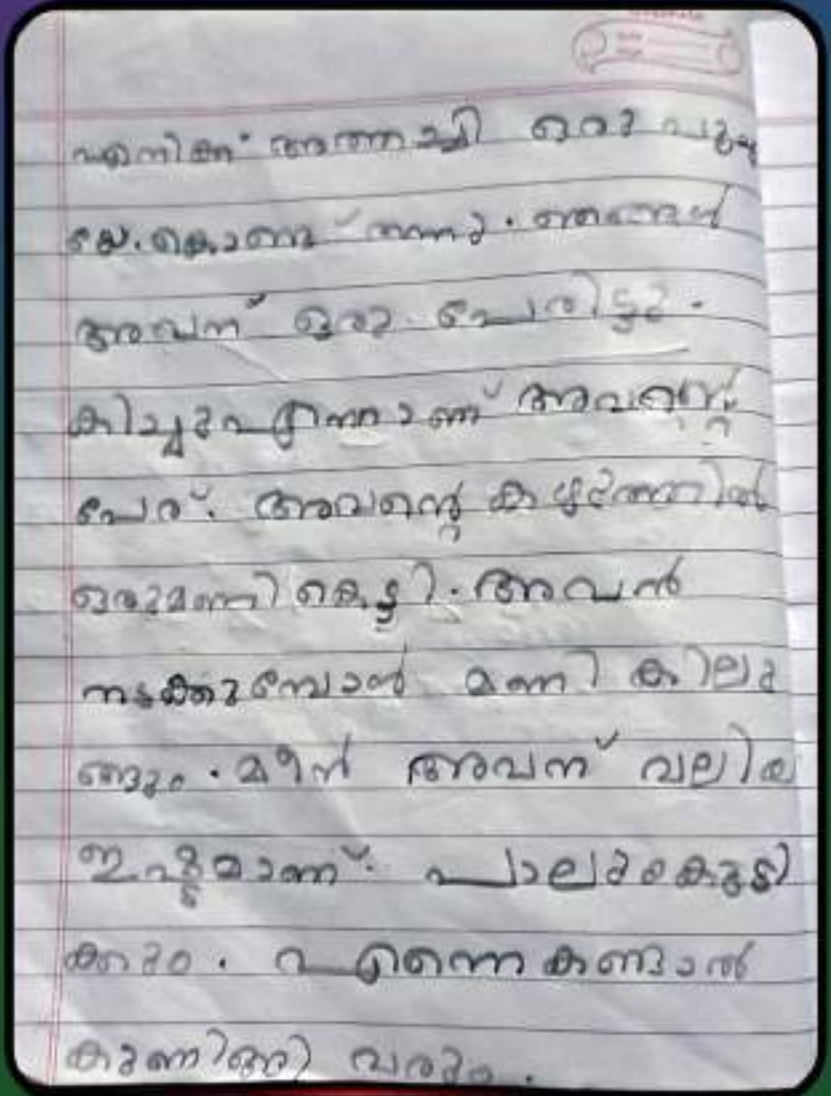 എനിക്ക് അത്താച്ചി ഒരു പൂച്ച
യെ കൊണ്ട് തന്നു. ഞങ്ങൾ
അവന് ഒരു പേരിട്ടു.
കിച്ചുഎന്നാണ് അവൻ്റെ
പേര്. അവൻ്റെ കഴുത്തിൽ
ഒരുമണി കെട്ടി. അവൻ
നടക്കുമ്പോൾ മണി കിലു
ങ്ങും. മീൻ അവന് വലിയ
ഇഷ്ടമാണ്. പാലുംകുടി
ക്കും. എന്നെ കണ്ടാൽ
കുണുങ്ങി വരും.